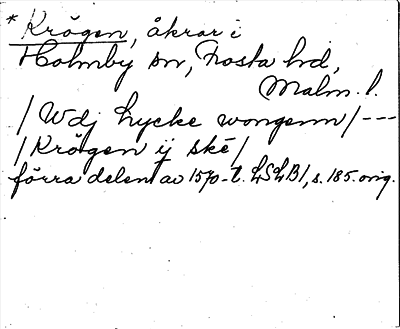 * Krögen, åkrar i
Holmby sn, Frosta hd,
Malm. l.
/Wdj Lycke wongenn/ ---
/Krögen ij ske/
förra delen av 1570-t. LSLB1, s. 185. orig.